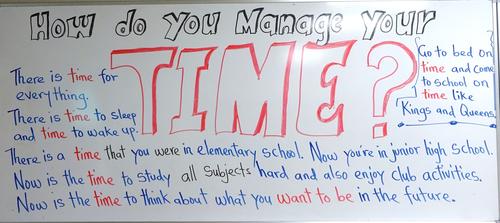 How do you Manage your
TIME?
There is time for
everything.
There is time to sleep
and time to wake up.
Go to bed on
time and come
to school on
time like
Kings and Queens.
There is a time that you were in elementary school. Now you're in junior high school.
Now is the time to study all subjects hard and also enjoy club activities.
Now is the time to think about what you want to be in the future.